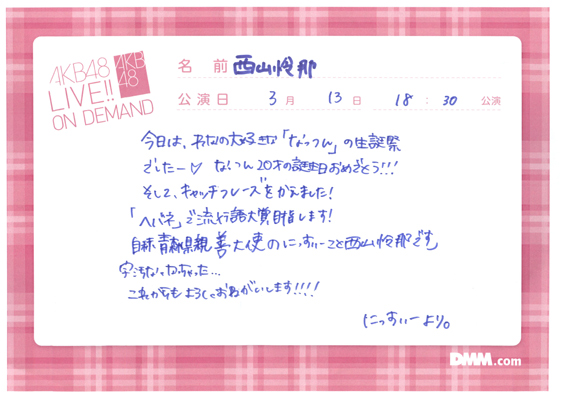 AKB48
LIVE!!
ON DEMAND
AKB
48
名 前 西山怜那
公演日 3月 13日 18:30 公演
今日は、れなの大好きな「なっつん」の生誕祭
でしたー♡ なっつん20才の誕生日おめでとう!!!
そして、キャッチフレーズをかえました!
「へパネ」で流行語大賞目指します!
自称青森県親善大使のにっすぃーこと西山怜那です
字汚なくなっちゃった...
これからもよろしくおねがいします!!!!
にっすぃーより。
DMM.com